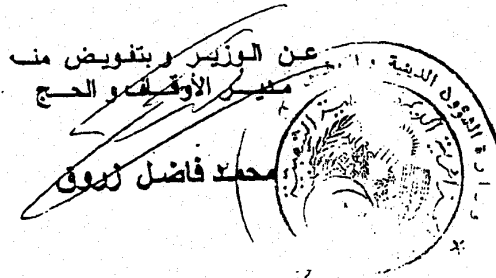 عن الوزير وبتفويض منه
مدير الأوقاف والحج
محمد فاضل زروق
وزارة الشؤون الدينية و